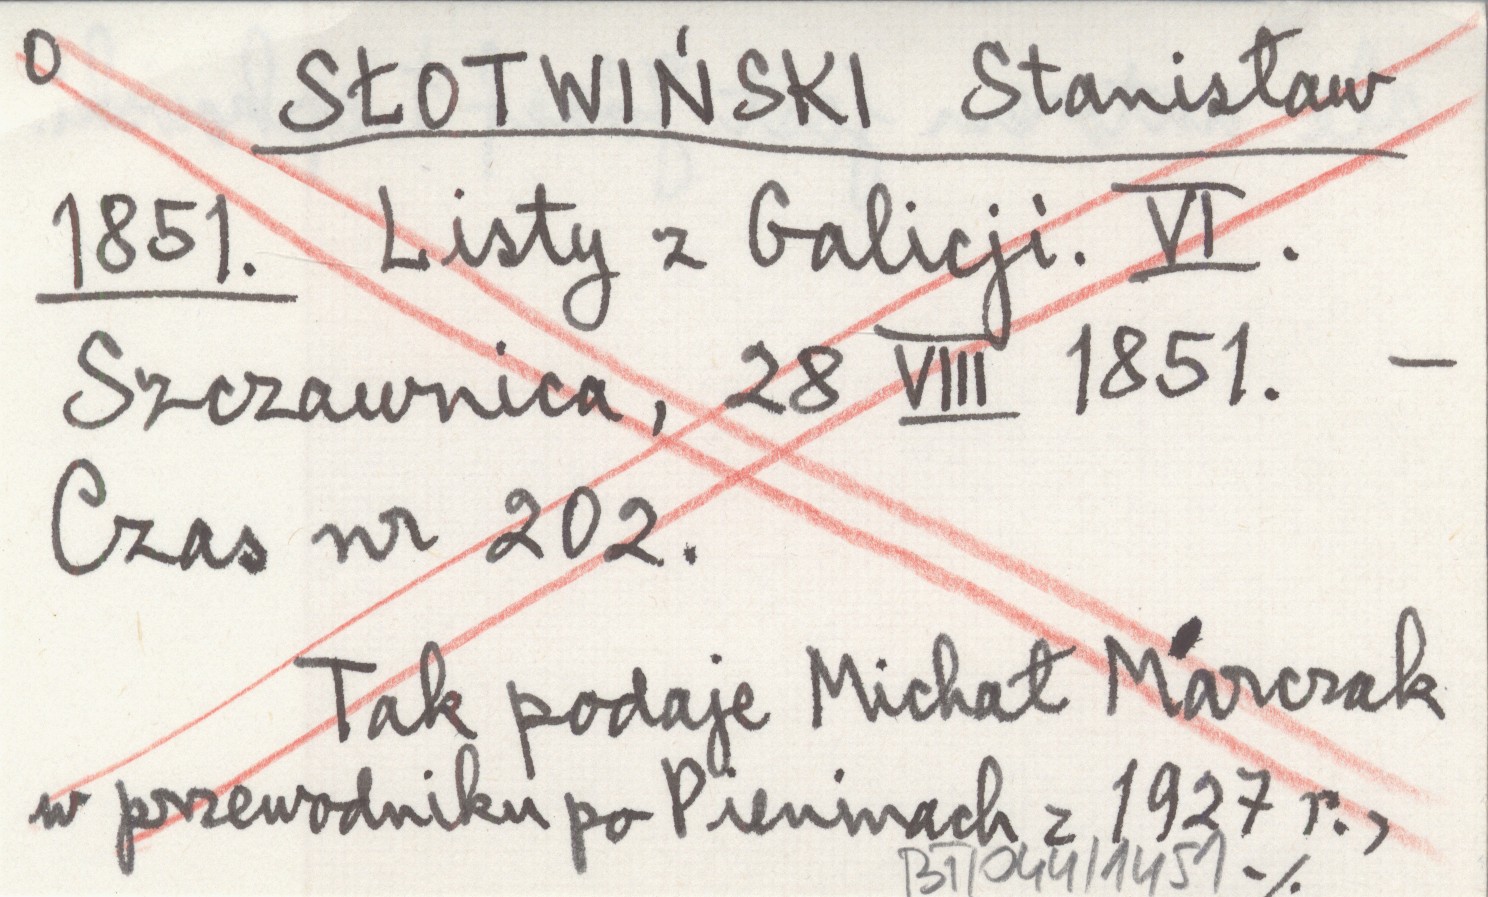 O SŁOTWIŃSKI Stanisław
1851. Listy z Galicji. VI.
Szczawnica, 28 VIII 1851. —
Czas nr 202.
Tak podaje Michał Marczak
w przewodniku po Pieninach z 1927 r.,
BT/044/1451 -/.